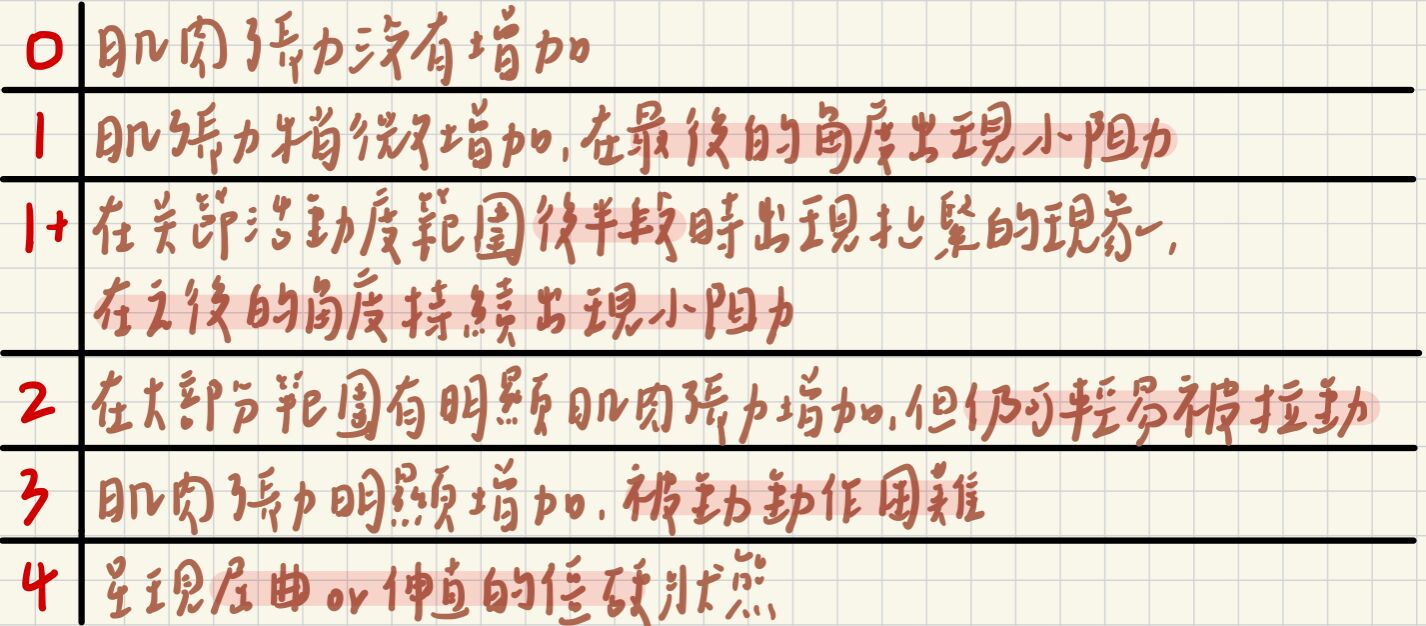 0 肌肉張力沒有增加
1 肌張力稍微增加,在最後的角度出現小阻力
1+ 在关節活動度範圍後半段時出現拉緊的現象,
在之後的角度持續出現小阻力
2 在大部份範圍有明顯肌肉張力增加,但仍可輕易被拉動
3 肌肉張力明顯增加,被動動作困難
4 呈現屈曲or伸直的僵硬狀態